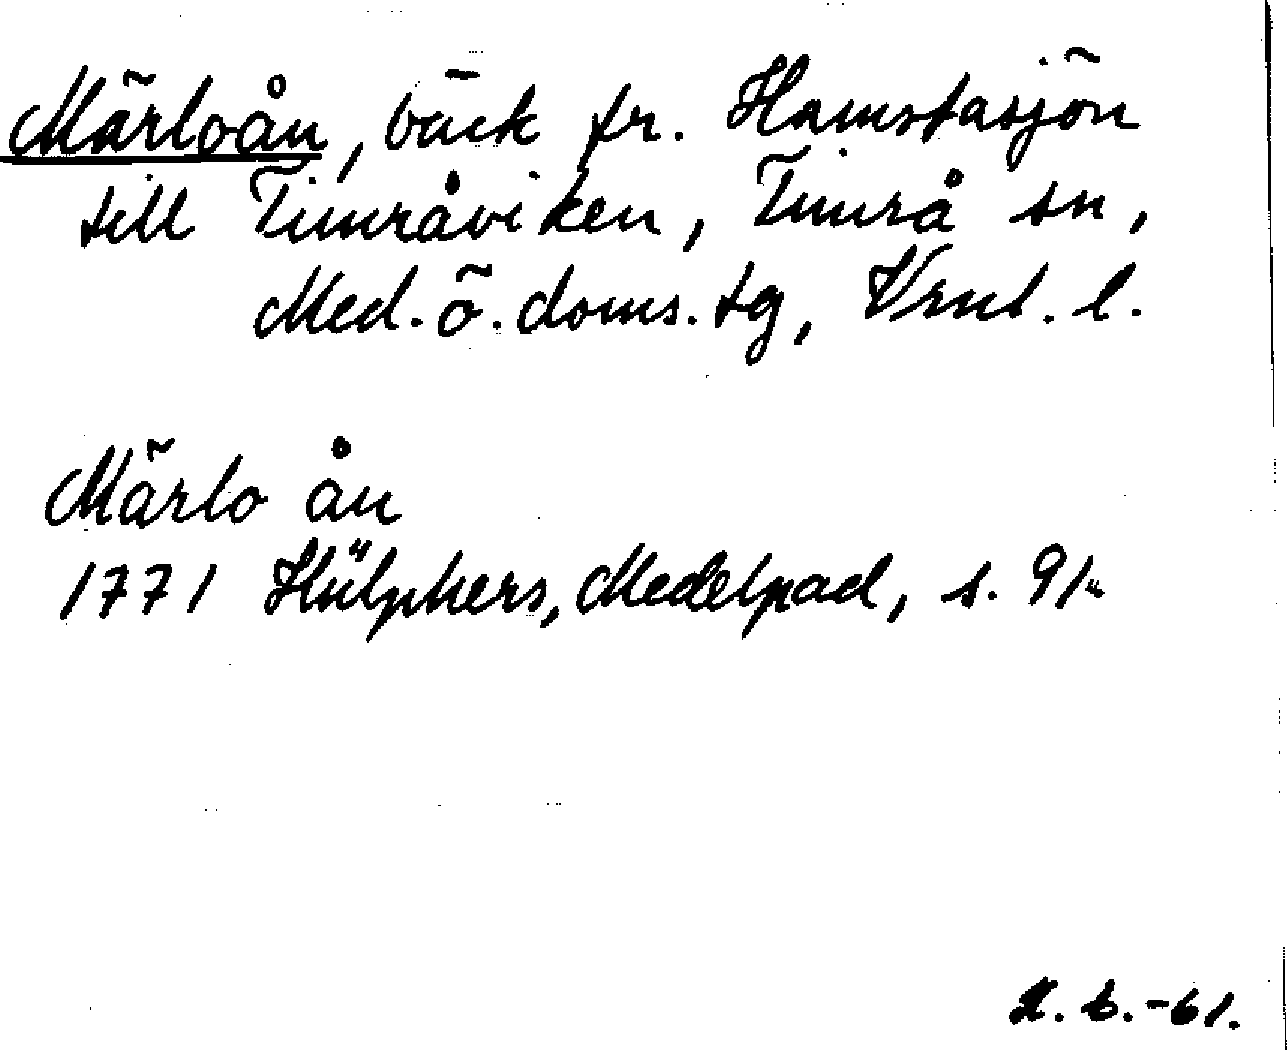 Märloån, bäck fr. Hamstasjön
till Timråviken, Timrå sn,
Med. ö. doms. tg, Vrnl. l.
Märlo ån
1771 Hülphers, Medelpad, s. 91
-61.